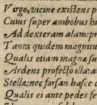 Vergiuicine existens p
Cuius super ambobus h
Ad dexteram alam: pr
Tanta quidem magnitu
Qualis etiam magna su
Ardens profecto
Stella: nec forsan hac e
Qualis ei ante pedes fe